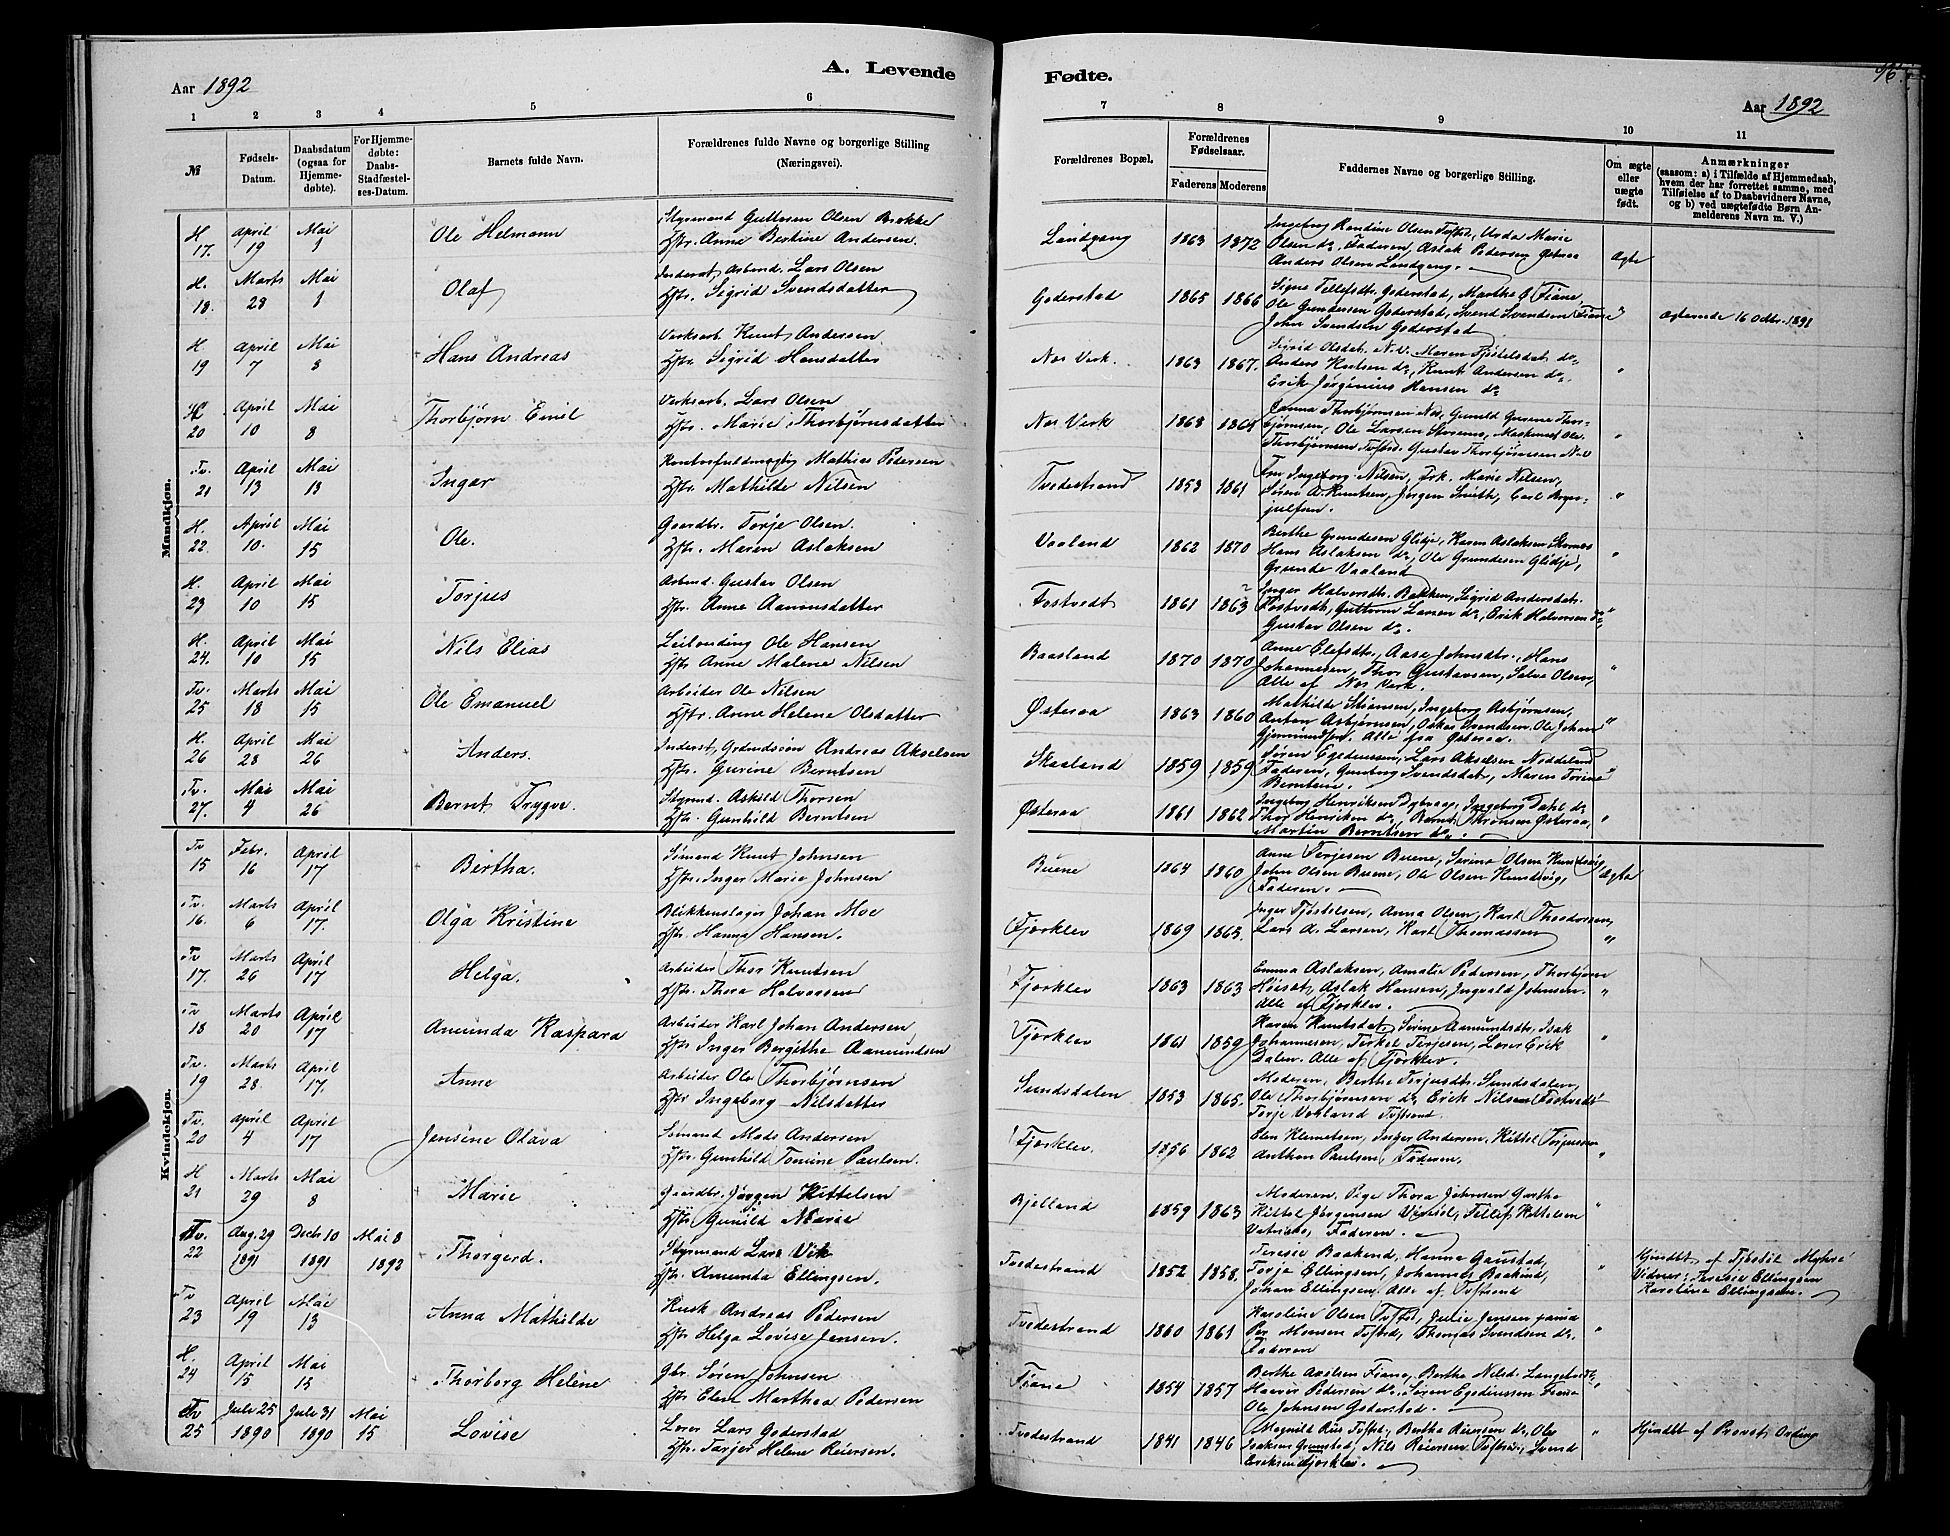 A. Levende
Fødte.
96.
Aar 1892
Aar 1892
1 2 3 4 5 6 7 8 9 10 11
№
Fødsels-Datum.
Daabsdatum (ogsaa for Hjemmedøbte).
For Hjemmedøbte: Daabs-Stadfæstelses-Datum.
Barnets fulde Navn.
Forældrenes fulde Navne og borgerlige Stilling (Næringsvei).
Forældrenes Bopæl.
Forældrenes Fødselsaar.
Faderens Moderens
Faddernes Navne og borgerlige Stilling.
Om ægte eller uægte født.
Anmærkninger
(saasom: a) i Tilfælde af Hjemmedaab, hvem der har forrettet samme, med Tilføielse af to Daabsvidners Navne, og b) ved uægtefødte Børn Anmelderens Navn m. V.)
Mandkjøn.
H. 17. April 19 Mai 1 Ole Helmann
Styrmand Guttorm Olsen Brekke
Hstr. Anne Bertine Andersen.
Landgang 1863 1872
Ingeborg Olsen Tvstrd,
Olsen do, Faderen, Aslak Pedersen Østeraa
Anders Olsen Landgang.
Ægte
H. 18. Marts 28 Mai 1 Olaf
Inderst, Arbeid. Lars Olsen
Hstr. Sigrid Svendsdatter
Goderstad 1865 1866
Signe Tellefsdtr. Goderstad, Marthe Fiane,
Ole Gundersen Goderstad, Svend Svendsen Fiane
John Svendsen Goderstad
"
ægteviede 16 Octbr. 1891
H. 19 April 7 Mai 8 Hans Andreas
Verksarb. Knut Andersen
Hstr. Sigrid Hansdatter
Nes Verk 1863 1867.
Sigrid Olsdat. N.V. Maren Tjøstelsdat. do
Anders Knutsen do, Knut Andersen do
Erik Jørginius Hansen do
"
H. 20 April 10 Mai 8 Thorbjørn Emil
Verksarb. Lars Olsen
Hstr. Marie Thorbjørnsdatter
Nes Verk 1868 1865
Thorbjørnsen Nes, Gunild Gurine Thorbjørnsen, Ole Larsen
Thorbjørnsen Tvstrd. Gustav Thorbjørnsen Nes
"
Tv. 21 April 13 Mai 13 Ingar
Kontorfuldmægtig Mathias Petersen
Hstr. Mathilde Nilsen
Tvedestrand 1853 1861
Fru Ingeborg Nilsen, Frk. Marie Nilsen,
Søren A. Knutsen, Jørgen Smith, Carl Brynjulfsen.
"
H. 22. April 10. Mai 15 Ole.
Gaardbr. Torje Olsen.
Hstr. Maren Aslaksen
Vaaland 1862 1870
Berthe Grundesen Glidje, Karen Aslaksen
Hans Aslaksen do, Ole Grundesen Glidje,
Grunde Vaaland
"
H. 23 April 10 Mai 15 Torjus
Arbeid. Gustav Olsen
Hstr. Anne Aanonsdatter
Fostvedt 1861 1863
Inger Halvorsdt. Bakken, Sigrid Andersdt.
Fostvedt, Guttorm Larsen do, Erik Halvorsen do
Gustav Olsen do.
"
H. 24. April 10 Mai 15 Nils Elias
Leilending Ole Hansen
Hstr. Anne Malene Nilsen
Baasland 1870 1870
Anne Olefsdtr, Aase Johnsdtr. Hans
Johannesen, Thor Gustavsen, Salve Olsen,
Alle af Nes Verk.
"
Tv. 25 Marts 18 Mai 15 Ole Emanuel
Arbeider Ole Nilsen
Hstr. Anne Helene Olsdatter
Østeraa 1863 1860
Mathilde Stiansen, Ingeborg Asbjørnsen,
Anton Asbjørnsen, Oskar Svendsen, Ole Johan
Gjermundsen. Alle fra Østeraa.
"
H. 26 April 28 Mai 26 Anders.
Inderst, Andreas Akselsen
Hstr. Gurine Berntsen
Skaaland 1859 1859
Søren Egedinssen, Lars Akselsen Noddeland
Faderen, Gunborg Svendsdat, Maren Torine
Berntsen.
"
Tv. 27. Mai 4 Mai 26 Bernt Trygve.
Styrmd. Askild Thorsen
Hstr. Gunhild Berntsen
Østeraa 1861 1862
Ingeborg Henriksen Dybvaag, Ingeborg Dahl do
Thor Henriksen do, Bernt Thronsen Østeraa,
Martin Berntsen do.
"
Kvindekjøn.
Tv 15 Febr. 16 April 17 Bertha.
Sømand Knut Johnsen
Hstr. Inger Marie Johnsen
Buene 1864 1860
Anne Terjesen Buene, Serina Olsen Kundsvig,
John Olsen Buene, Ole Olsen Kundsvig,
Faderen.
Ægte
Tv. 16. Marts 6 April 17. Olga Kristine
Blikkenslager Johan Moe
Hstr. Hanna Hansen.
Fjærklev 1869 1865.
Inger Tjøstelsen, Anna Olsen, Karl Theodorsen,
Lars A. Larsen, Karl Thomassen
"
Tv 17. Marts 26 April 17 Helga.
Arbeider Thor Knutsen
Hstr. Thora Halvorsen
Fjærklev 1863 1863
Emma Aslaksen, Amalie Pedersen, Thorbjørn
Aslak Hansen, Ingvald Johnsen.
Alle af Fjærklev.
"
Tv 18 Marts 20 April 17 Amunda Kaspara
Arbeider Karl Johan Andersen,
Hstr Inger Bergithe Aamundsen
Fjærklev 1861 1859
Karen Knutsdat, Serine Aamundsdtr, Isak
Johannesen, Terkel Terjesen, Lærer Erik
Dalen. Alle af Fjærklev.
"
Tv. 19 Marts 28 April 17 Anne
Arbeider Ole Thorbjørnsen
Hstr Ingeborg Nilsdatter
Sundsdalen 1853 1865.
Moderen, Berthe Terjusdtr. Sundsdalen,
Ole Thorbjørnsen do, Erik Nilsen Fostvedt
Torje Vokland Tvstrand.
"
Tv. 20 April 4 April 17 Jensine Olava
Sømand Mads Andersen
Hstr. Gunhild Tomine Paulsen.
Fjærklev. 1856 1862
Elen Klemetsen, Inger Andersen, Kittel Terjussen
Anthon Paulsen, Faderen.
"
H 21 Marts 29 Mai 8 Marie
Gaardbr. Jørgen Kittelsen
Hstr. Gunild Marie
Bjelland 1859 1863
Moderen. Pige Thora Johnsen Garthe
Kittel Jørgensen, Tellef Kittelsen
Faderen.
"
Tv. 22 Aug. 29 1891 Decb 10 1891 Mai 8 1892 Thorgerd.
Styrmand Lars Vik
Hstr. Amunda Ellingsen.
Tvedestrand 1852 1858.
Teresie Baakend, Hanna Gaustad,
Torje Ellingsen, Johannes Baakind,
Johan Ellingsen, Alle af Tvstrand
"
Hjmdbt af Tjøstøl Myhre
Vidner: Theresie Ellingsen
Karoline Ellingsen.
Tv 23 April 19 Mai 13 Anna Mathilde
Kusk Andreas Pedersen
Hstr Helga Lovise Jensen.
Tvedestrand 1860 1861
Karoline Olsen Tvstrd, Julie Jensen
Per Monsen Tvstrd, Thomas Svendsen do.
Faderen
"
H. 24 April 15 Mai 15 Thorborg Helene
Gbr. Søren Johnsen
Hstr Elen Marthea Pedersen
Fiane 1854 1857
Berthe Axelsen Fiane, Berthe Nilsd.
Haavor Pedersen do. Søren Egedinssen Fiane
Ole Johnsen Goderstad.
"
Tv 25 Jule 25 1890 Jule 31 1890 Mai 15 Lovise
Lærer Lars Goderstad
Hstr. Tarjer Helene Reiersen.
Tvedestrand 1841 1846
Magnild Riis Tvstrd, Berthe Reiersen do, Ole
Isaksen Grimstad, Nils Reiersen Tvstrd, Svend
Eriksen Fjærklev.
"
Hjmdbt af Provst Ording